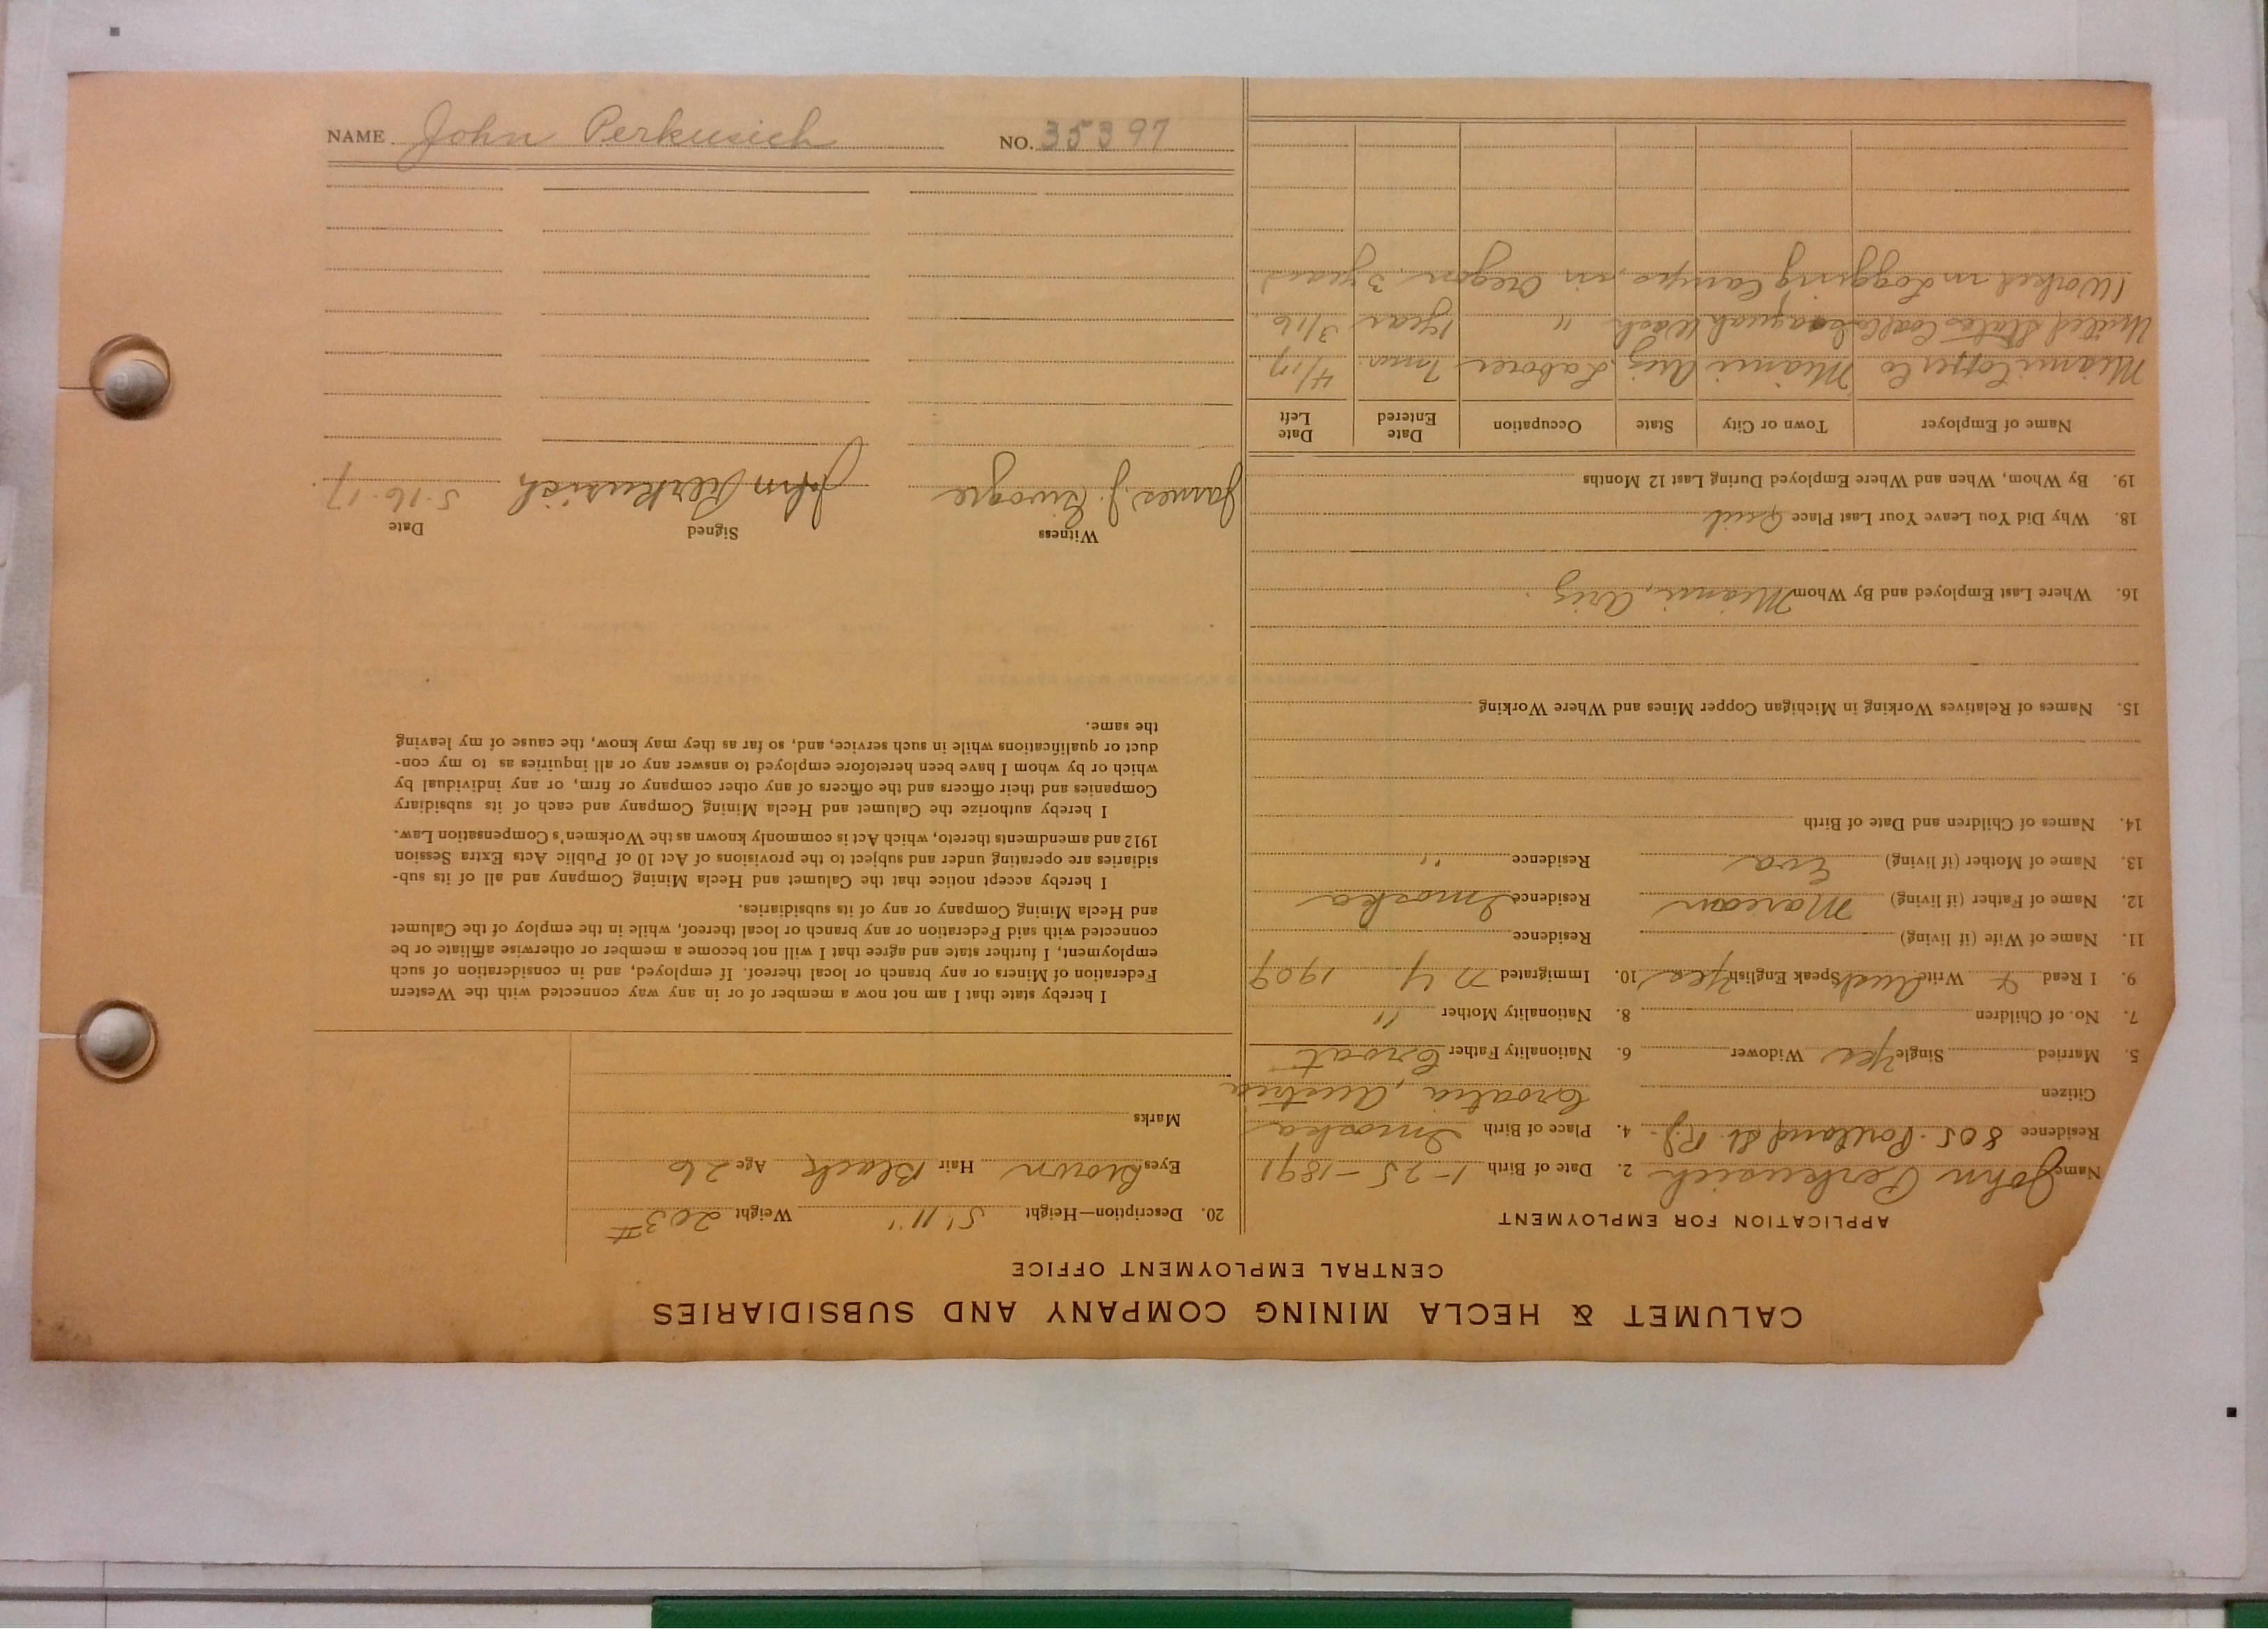 NAME John Perkusich NO. 35397
CALUMET & HECLA MINING COMPANY AND SUBSIDIARIES
CENTRAL EMPLOYMENT OFFICE
APPLICATION FOR EMPLOYMENT
Name John Perkusich 2. Date of Birth 1-25-1891
Residence 805 Portland St. 4. Place of Birth Imoska
Citizen Croatia, Austria
5. Married Single Yes Widower 6. Nationality Father Croat
7. No. of Children 8. Nationality Mother "
9. I Read & Write Aust Speak English Yes 10. Immigrated N Y 1907
11. Name of Wife (if living) Residence
12. Name of Father (if living) Marian Residence Imoska
13. Name of Mother (if living) Eva Residence "
14. Names of Children and Date of Birth
15. Names of Relatives Working in Michigan Copper Mines and Where Working
16. Where Last Employed and By Whom Miami, Ariz
18. Why Did You Leave Your Last Place Quit
19. By Whom, When and Where Employed During Last 12 Months
Name of Employer Town or City State Occupation Date Entered Date Left
Miami Copper Co Miami Ariz Laborer 7 mos. 4/17
United States Coal Co Issaquah Wash. " 1 year 3/16
(Worked in Logging Camps, in Oregon, 3 years)
20. Description—Height 5' 11" Weight 203 #
Eyes Brown Hair Black Age 26
Marks
I hereby state that I am not now a member of or in any way connected with the Western
Federation of Miners or any branch or local thereof. If employed, and in consideration of such
employment, I further state and agree that I will not become a member or otherwise affiliate or be
connected with said Federation or any branch or local thereof, while in the employ of the Calumet
and Hecla Mining Company or any of its subsidiaries.
I hereby accept notice that the Calumet and Hecla Mining Company and all of its sub-
sidiaries are operating under and subject to the provisions of Act 10 of Public Acts Extra Session
1912 and amendments thereto, which Act is commonly known as the Workmen's Compensation Law.
I hereby authorize the Calumet and Hecla Mining Company and each of its subsidiary
Companies and their officers and the officers of any other company or firm, or any individual by
which or by whom I have been heretofore employed to answer any or all inquiries as to my con-
duct or qualifications while in such service, and, so far as they may know, the cause of my leaving
the same.
Witness Signed Date
James J. John Perkusich 5-16-17